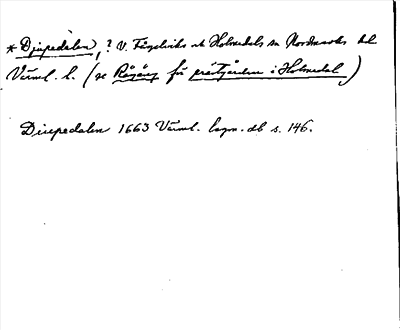 * Djupedalen, ? V. Fågelviks o Holmedals sn Nordmarks hd
Värml. l. (se Rågång för prästgården i Holmedal)
Diupedalen 1663 Värml. lagm. db s. 146.